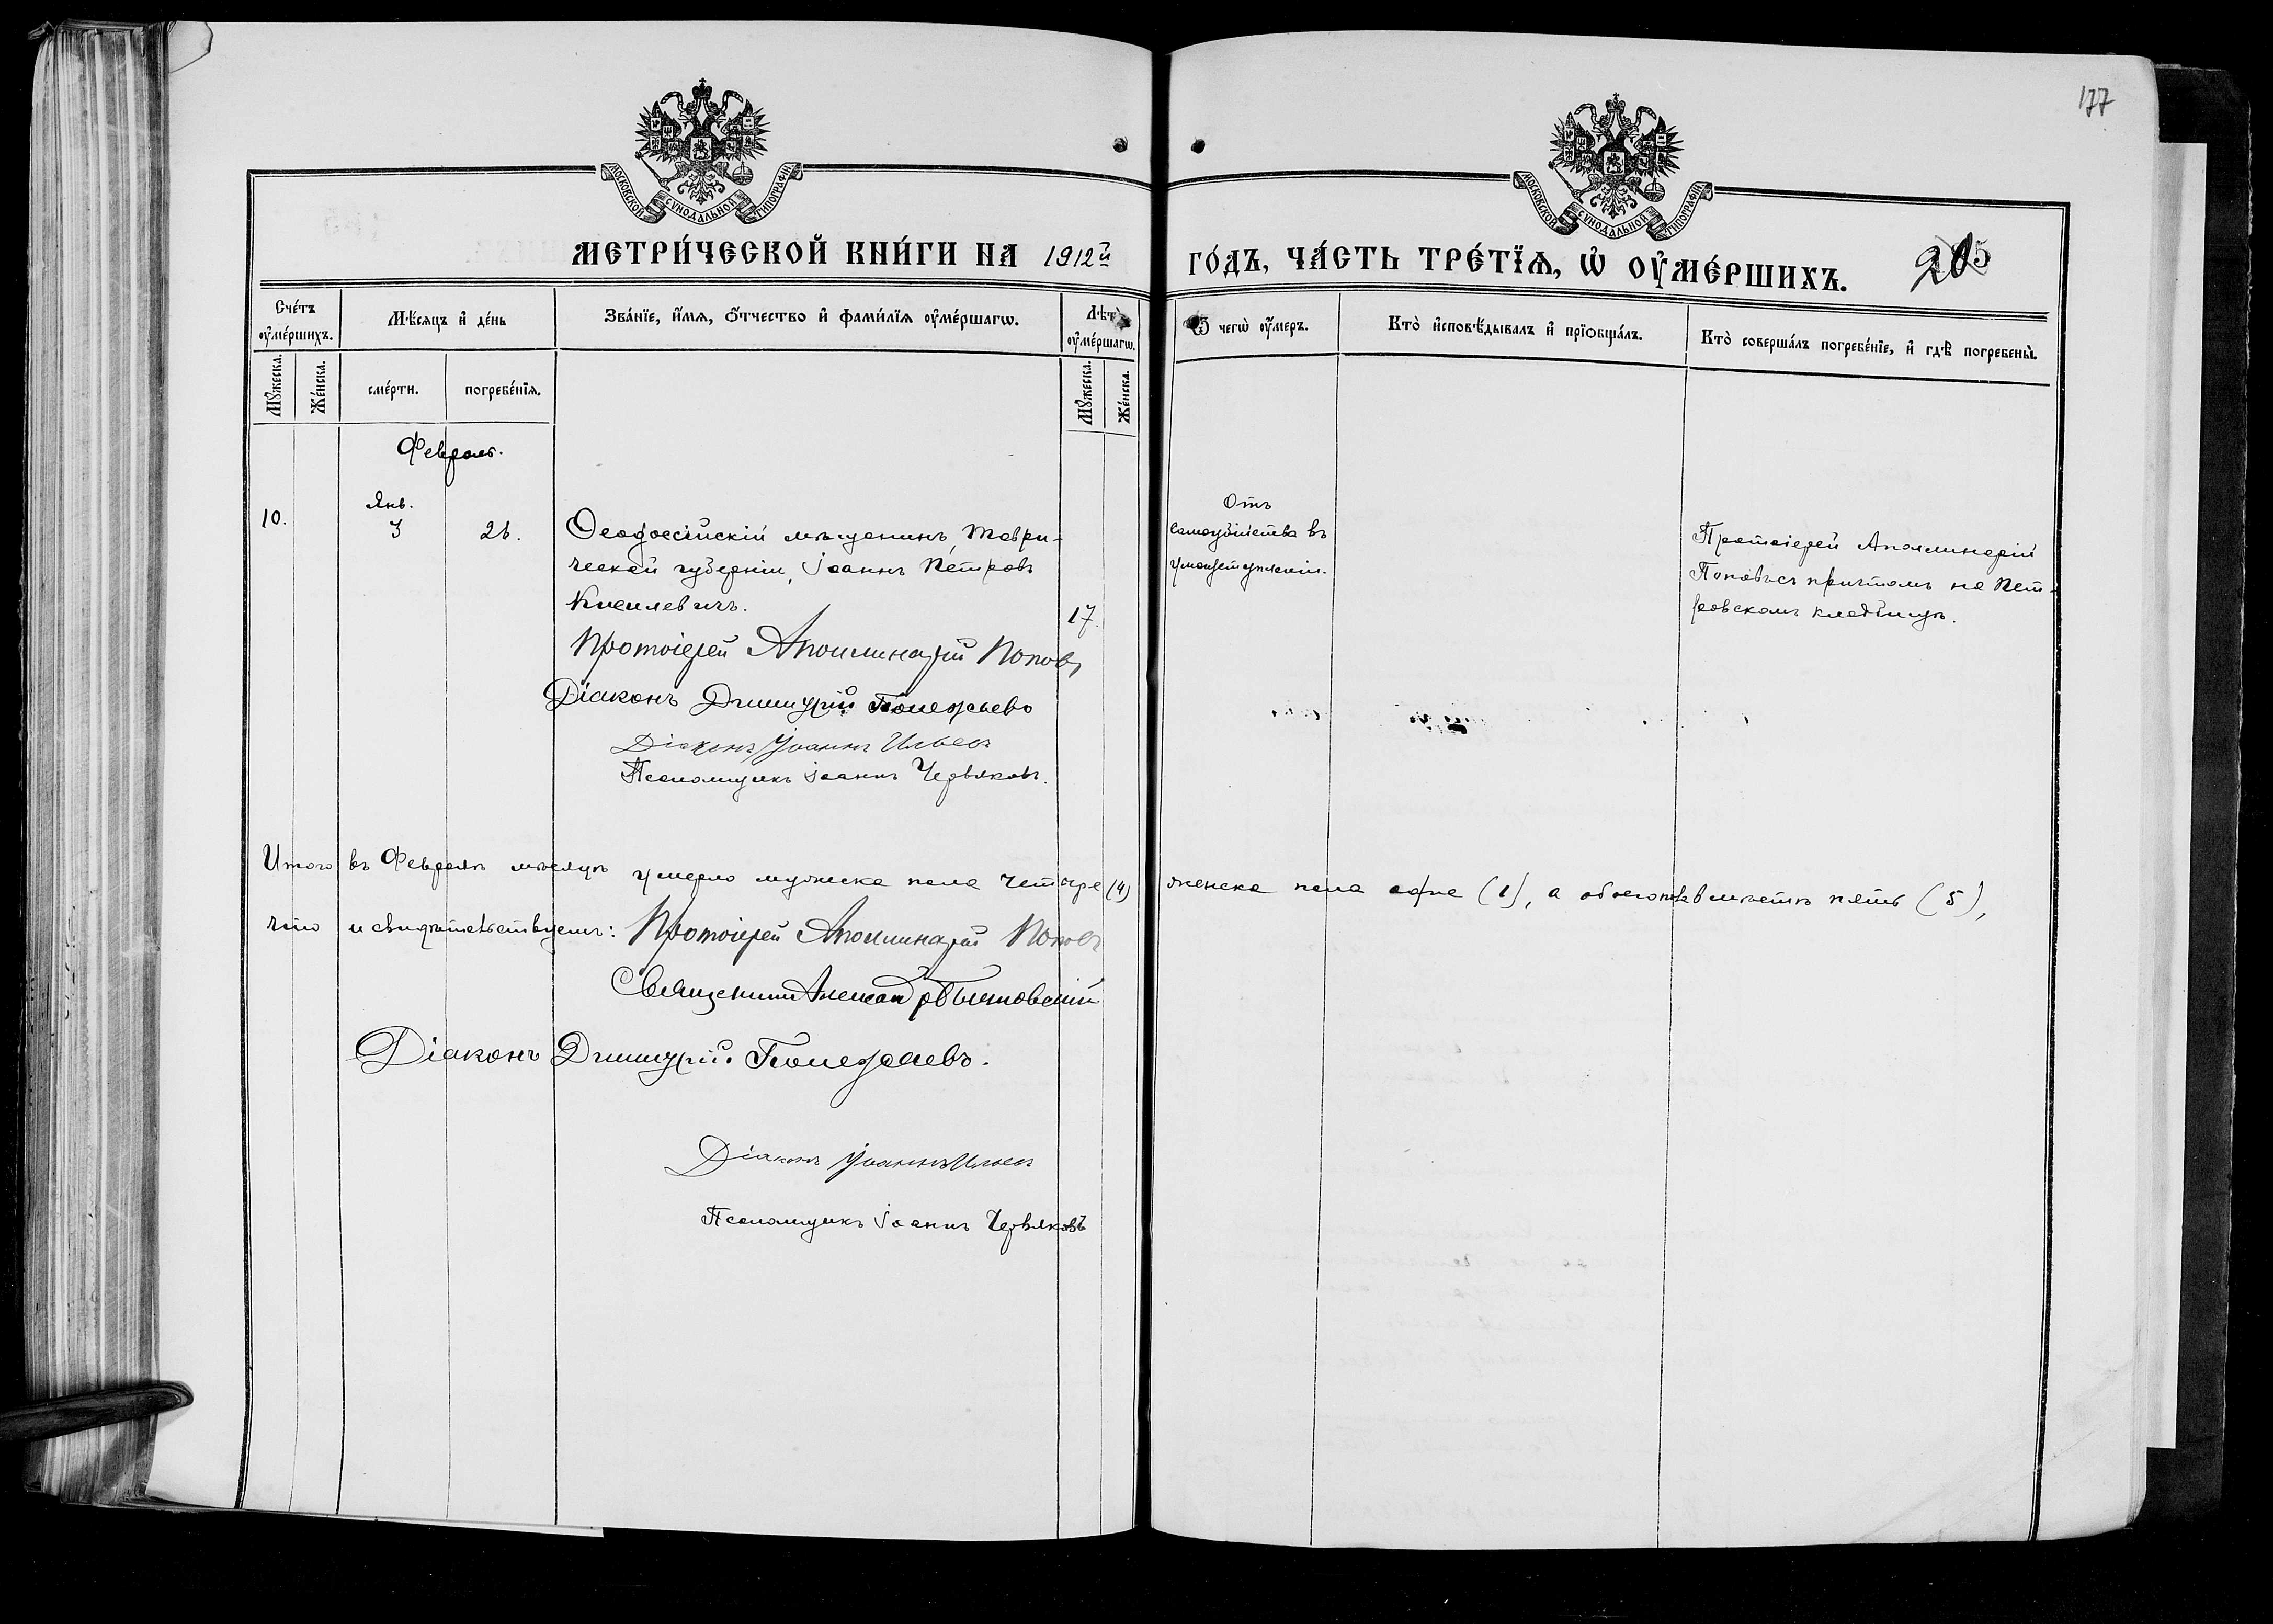 177
МОСКОВСКОЙ СУНОДАЛЬНОЙ ТИПОГРАФІИ.
МОСКОВСКОЙ СУНОДАЛЬНОЙ ТИПОГРАФІИ.
МЕТРИ́ЧЕСКОЙ КНИ́ГИ НА 1912й ГО́ДЪ, ЧА́СТЬ ТРЕ́ТЇѦ, Ѡ҆ ОУ҆МЕ́РШИХЪ.
205
Сче́тъ оу҆ме́ршихъ.
Мꙋ́жеска.
Же́нска.
Мѣ́сяцъ и҆ де́нь
сме́рти.
погребе́нїѧ.
Зва́нїе, и҆́мѧ, ѻ҆́тчество и҆ фами́лїѧ оу҆ме́ршагѡ.
Лѣ́тъ оу҆ме́ршагѡ.
Мꙋ́жеска.
Же́нска.
Ѿ чегѡ̀ оу҆́меръ.
Кто̀ и҆сповѣ́дывалъ и҆ прїѻбща́лъ.
Кто̀ соверша́лъ погребе́нїе, и҆ гдѣ̀ погребены̀.
Февраль.
Янв.
10.
3
Ѳеодосійскій мѣщанинъ, Таври-
ческой губерніи, Іоаннъ Петровъ
17.
Отъ
самоубійства въ
умоизступленіи.
Протоіерей Аполлинарій
Поповъ съ причтомъ на Пет-
ровскомъ кладбищѣ.
Протоіерей Аполлинарій Поповъ
Діаконъ Димитрій
Діаконъ Іоаннъ
Псаломщикъ Іоаннъ Червяковъ.
Итого въ Февралѣ мѣсяцѣ умерло мужеска пола четыре (4) женска пола одна (1), а обоего вмѣстѣ пять (5),
что и свидѣтельствуемъ: Протоіерей Аполлинарій Поповъ
Священникъ
Діаконъ Димитрій
Діаконъ Іоаннъ
Псаломщикъ Іоаннъ Червяковъ